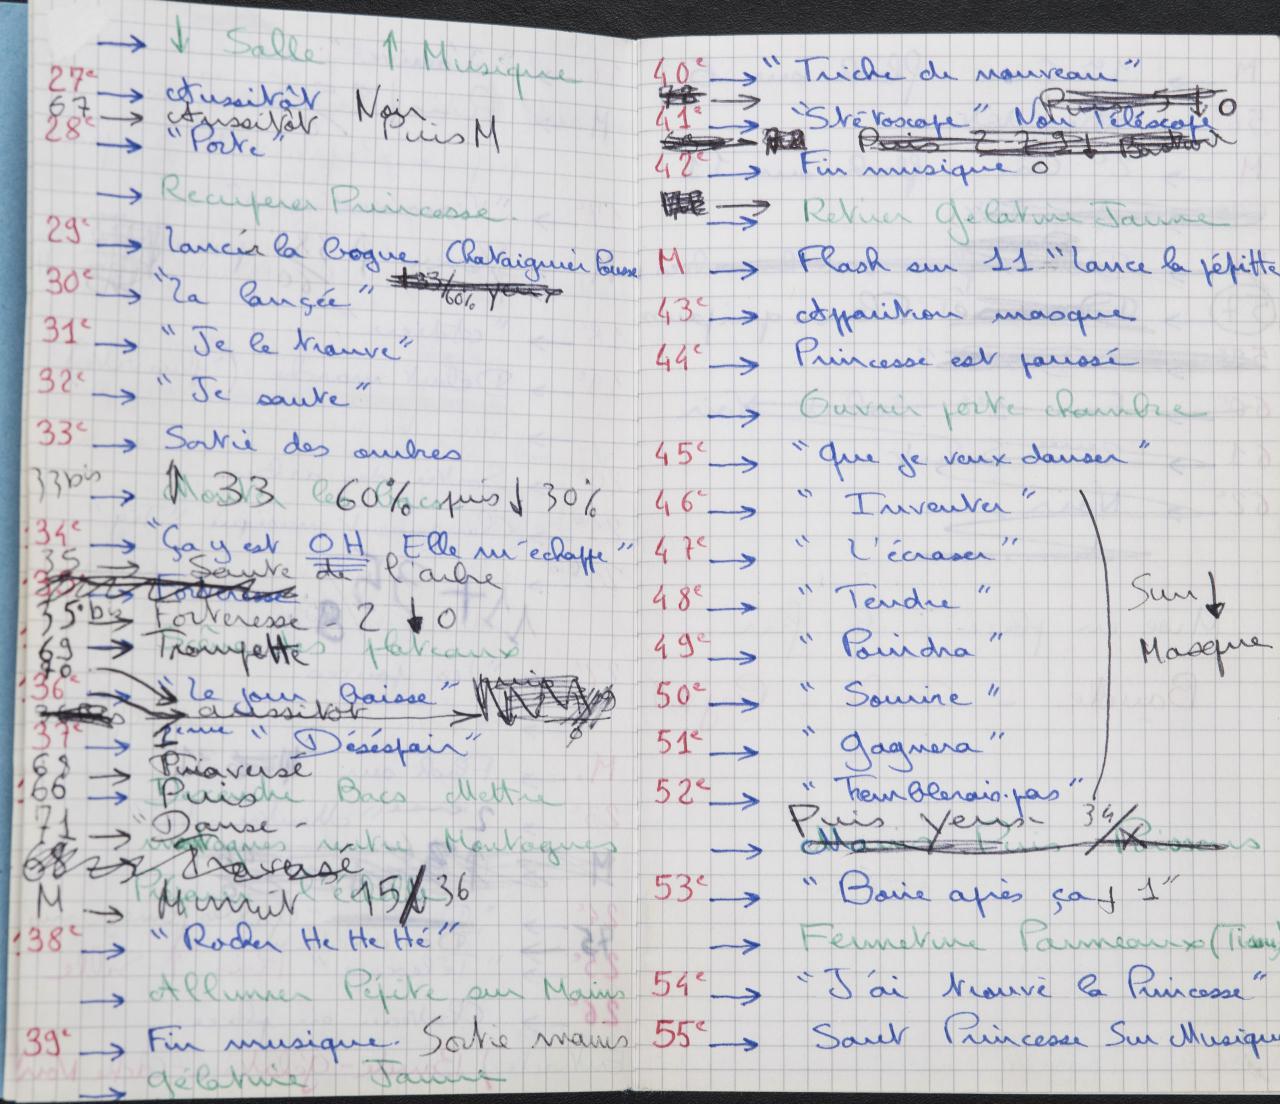 → ↓ Salle ↑ Musique
27e → Aussitôt Noir
67 → Aussitôt puis M
28e → "Porte"
→ Recuperer Princesse
29e → Lancer la bogue Chataignier
30e → "La lancée"
31e → "Je le trouve"
32e → "Je saute"
33e → Sortie des ombres
33 bis → ↑ 33 60% puis ↓ 30%
34e → "Ça y est OH Elle m'echappe"
35 → Saute de l'arbre
35 bis → Forteresse - 2 ↓ 0
69 → Trompette plateaux
70
36e → "Le jour baisse"
→ aussitôt →
37e → "Déséspair"
68 →
66 → Puis Bacs Mettre
71 → "Danse -
Montagnes
M → Minuit 15/36
38e → "Rocher He He Hé"
→ Allumer Pépite sur Mains
39e → Fin musique. Sortie mains
→ gélatine Jaune
40e → "Triche de nouveau"
41e → "Stétoscope" Non Téléscope ↓ 0
42e → Fin musique 0
→ Retirer Gélatine Jaune
M → Flash sur 11 "Lance la pépite
43e → Apparition masque
44e → Princesse est poussé
→ Ouvrir porte chambre
45e → "Que je veux danser"
46e → "Inventer"
47e → "L'écraser"
48e → "Tendre"
49e → "Poindra"
50e → "Sourire"
51e → "Gagnera"
52e → "Tremblerais.pas"
Sur ↓
Masque
Puis yeux- 34
→
53e → "Boire après ça ↓ 1"
→ Fermeture Panneaux (Tissu)
54e → "J'ai trouvé la Princesse"
55e → Saut Princesse Sur Musique